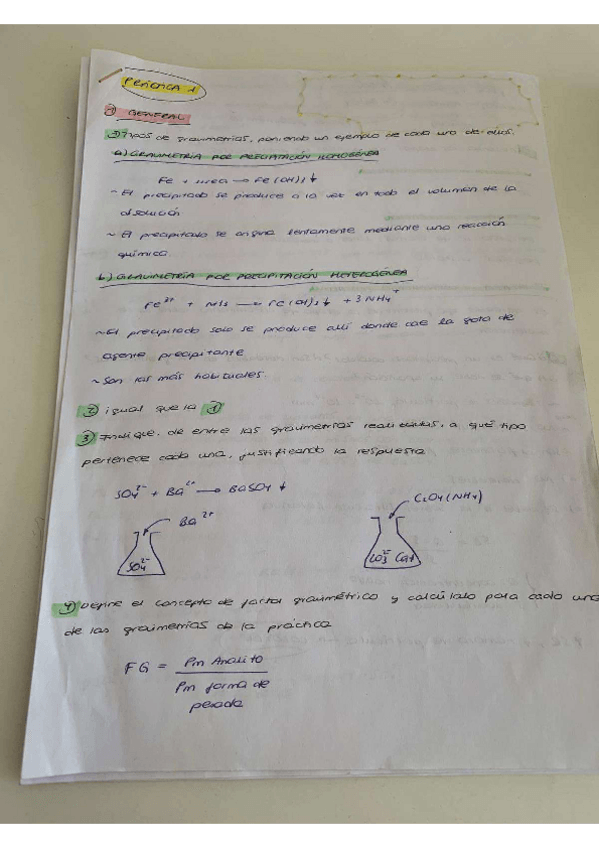 PRÁCTICA 1
1) GENERAL
1) Tipos de gravimetrías, poniendo un ejemplo de cada uno de ellos.
a) GRAVIMETRÍA POR PRECIPITACIÓN HOMOGÉNEA
Fe + urea → Fe(OH)₃↓
~ El precipitado se produce a la vez en todo el volumen de la
disolución
~ El precipitado se origina lentamente mediante una reacción
química
b) GRAVIMETRÍA POR PRECIPITACIÓN HETEROGÉNEA
Fe³⁺ + NH₃ → Fe(OH)₃↓ + 3NH₄⁺
~ El precipitado solo se produce allí donde cae la gota de
agente precipitante
~ Son las más habituales.
2) igual que la 1)
3) Indique, de entre las gravimetrías realizadas, a qué tipo
pertenece cada una, justificando la respuesta
SO₄²⁻ + Ba²⁺ → BaSO₄↓
Ba²⁺
C₂O₄(NH₄)
SO₄²⁻
4) Define el concepto de factor gravimétrico y calcúlalo para cada una
de las gravimetrías de la práctica
FG = Pm Analito
Pm forma de
pesada